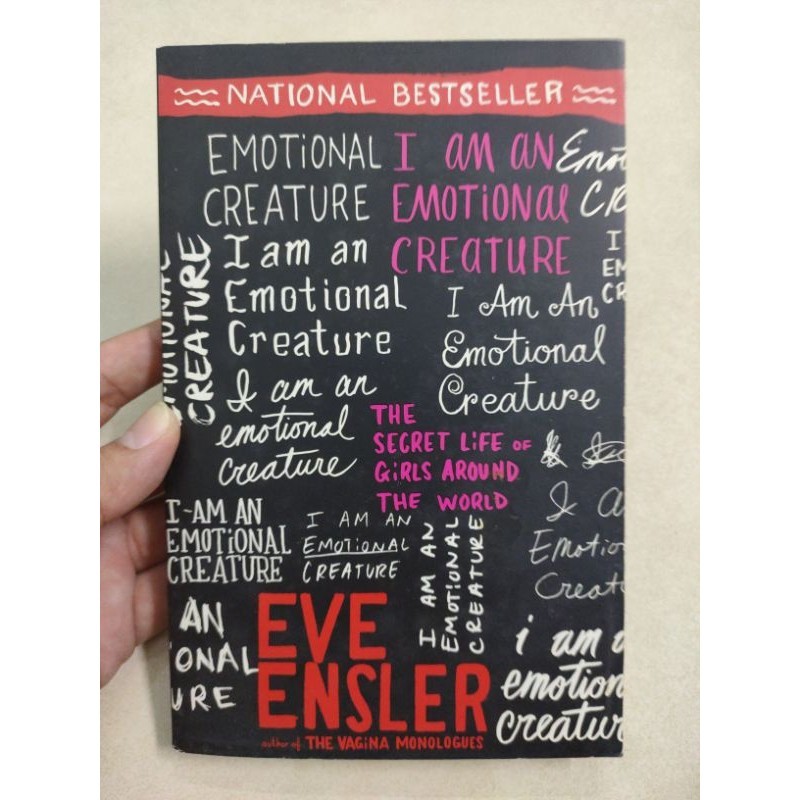 NATIONAL BESTSELLER
EMOTIONAL
CREATURE
I AM AN
EMOTIONAL
CREATURE
Emot
CR
I
EM
CR
EMOTIONAL
CREATURE
I am an
Emotional
Creature
I Am An
Emotional
Creature
I am an
emotional
creature
THE
SECRET LIFE OF
GIRLS AROUND
THE WORLD
I-AM AN
EMOTIONAL
CREATURE
I AM AN
EMOTIONAL
CREATURE
I AM AN
EMOTIONAL
CREATURE
I a
Emotion
Creat
AN
ONAL
URE
EVE
ENSLER
author of THE VAGINA MONOLOGUES
i am a
emotion
creatur